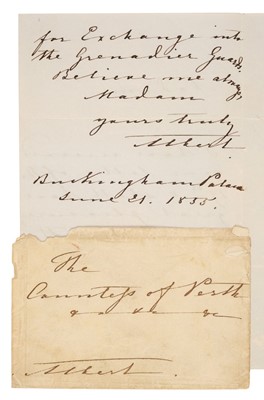 for Exchange into
the Grenadier Guards.
Believe me always
Madam
yours truly
Albert.
Buckingham Palace
June 21. 1855.
The
Countess of Perth
&c &c &c
Albert.